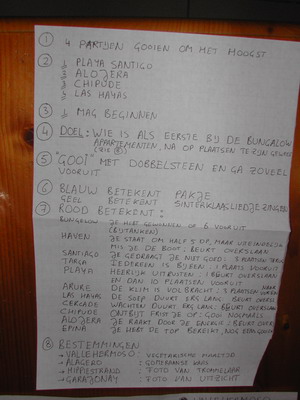 ① 4 PARTIJEN GOOIEN OM HET HOOGST
② PLAYA SANTIGO
ALOJERA
CHIPUDE
LAS HAYAS
③ MAG BEGINNEN
④ DOEL: WIE IS ALS EERSTE BIJ DE BUNGALOW
APPARTEMENTEN, NA OP PLAATSEN TE ZIJN GEWEEST
(ZIE ⑧)
⑤ "GOOI" MET DOBBELSTEEN EN GA ZOVEEL
VOORUIT
⑥ BLAUW BETEKENT PAKJE
GEEL BETEKENT SINTERKLAASLIEDJE ZINGEN
⑦ ROOD BETEKENT:
BUNGALOW JE HEBT GEWONNEN OF 6 VOORUIT
(BIJTANKEN)
HAVEN JE STAAT OM HALF 5 OP, MAAR
MIS JE DE BOOT: BEURT OVERSLAAN
SANTIAGO JE GEDRAAGT JE NIET GOED: 3 PLAATSEN TERUG
TARCA IEDEREEN IS BIJEEN: 1 PLAATS VOORUIT
PLAYA HEERLIJK UITRUSTEN: 1 BEURT OVERSLAAN
EN DAN 10 PLAATSEN VOORUIT
ARURE DE KLIM IS VOLBRACHT: 2 PLAATSEN
LAS HAYAS DE SOEP DUURT ERG LANG: BEURT OVERSL
CERCADO WACHTEN DUURT ERG LANG: BEURT OVERSLAAN
CHIPUDE ONTBIJT FRIST JE OP: GOOI NOGMAALS
ALOJERA JE RAAKT DOOR JE ENERGIE: BEURT OVERSL
EPINA JE HEBT DE TOP BEREIKT, NOG EEN GOOI
⑧ BESTEMMINGEN
→ VALLEHERMOSO: VEGETARISCHE MAALTIJD
→ ALAGERO: GOMERAANSE KAAS
→ HIPPIESTRAND: FOTO VAN TROMMELAAR
→ GARAJONAY: FOTO VAN UITZICHT